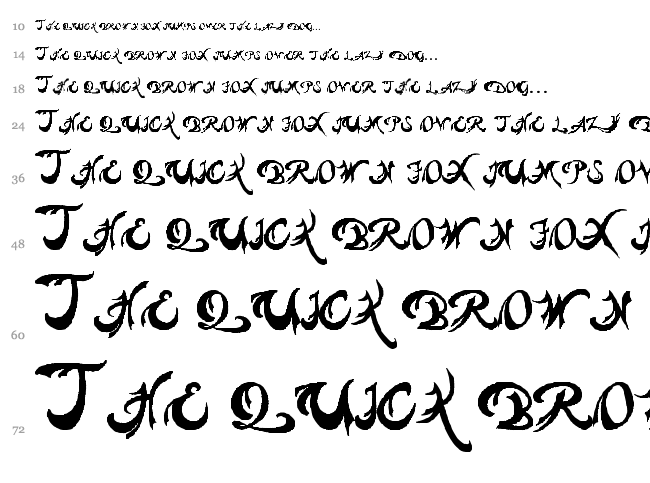 10 The quick brown fox jumps over the lazy dog...
14 The quick brown fox jumps over the lazy dog...
18 The quick brown fox jumps over the lazy dog...
24 The quick brown fox jumps over the lazy d
36 The quick brown fox jumps ov
48 The quick brown fox j
60 The quick brown
72 The quick brow